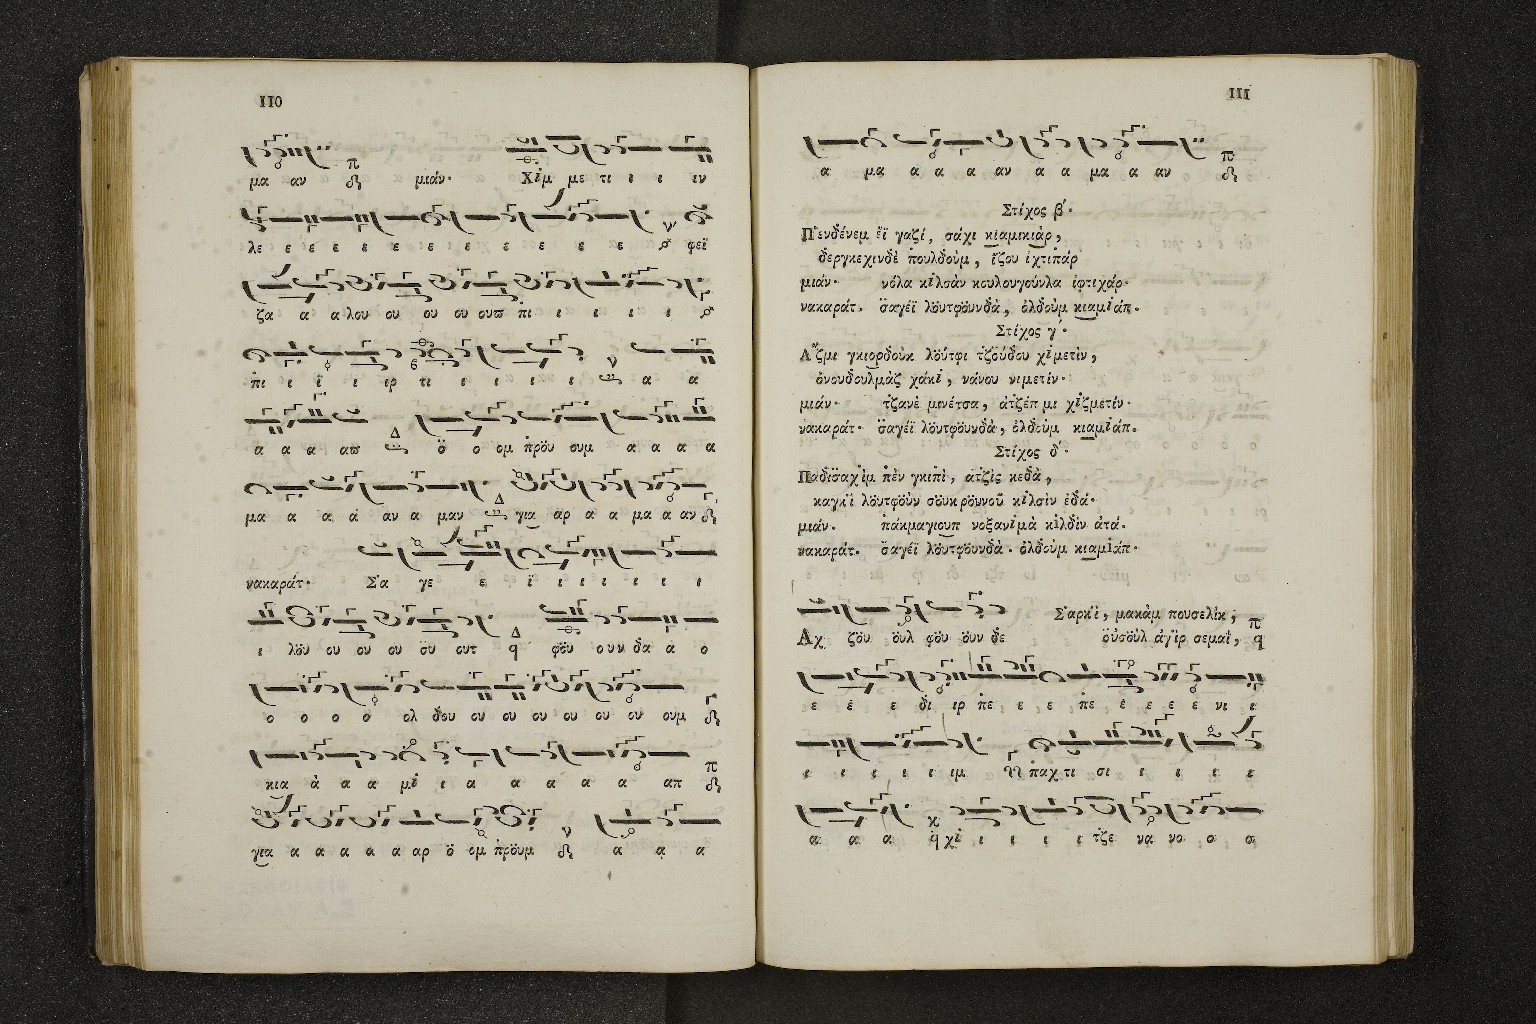 110
μα αν μιάν· Χίμ με τι ι ι ιν
λε ε ε ε ε ε ε ε ε ε ε ε φεϊ
ζα α α λου ου ου ου ουσ πι ι ι ι ι
πι ι ϊ ι ιρ τι ι ι ι ι α α
α α α ασ ὄ ο ομ πρὄυ ουμ α α α α
μα α α ά αν α μαν για αρ α α μα α αν
νακαράτ· Σα γε ε ϊ ι ι ι ι ι ι
ι λὄυ ου ου ου σϋ ουτ φὄυ ουν δα α ο
ο ο ο ο ολ δου ου ου ου ου ου ου ουμ
κια ὰ α α μἰ ι α α α α α απ
για α α α α α αρ ὄ ομ πρὄυμ α α α
111
α μα α α α αν α α μα α αν
Στίχος β'·
Πενδένεμ ἔϊ γαζί, σάχι κιαμικιὰρ,
δεργκεχινδὲ πουλδοὺμ, ἴζου ἰχτιπάρ
μιάν· νόλα κἰλσὰν κουλουγούνλα ἰφτιχάρ·
νακαράτ. σαγέϊ λὄυτφὄυνδὰ, ὀλδοὺμ κιαμἰάπ.
Στίχος γ'·
Ἄζμι γκιορδοὺκ λὄύτφι τζούδου χἰμετὶν,
ὀνουδουλμὰζ χάκἰ, νάνου νιμετίν·
μιάν· τζανὲ μινέτσα, ἀτζέπ μι χἰζμετίν·
νακαράτ· σαγέϊ λὄυτφὄυνδὰ, ὀλδοὺμ κιαμἰάπ.
Στίχος δ'·
Παδισαχὶμ πὲν γκιπὶ, ἀτζὶζ κεδὰ,
καγκἲ λὄυτφὄὺν σὄυκρὄυνοῦ κἰλσὶν ἐδά·
μιάν. πάκμαγιουπ νοξανἰμὰ κἰλδὶν ἀτά.
νακαράτ. σαγέϊ λὄυτφὄυνδὰ. ὀλδοὺμ κιαμἰάπ·
Σαρκὶ, μακὰμ πουσελὶκ,
Αχ ζὄυ ὄυλ φὄυ ὄυν δε ὀὐσοὺλ ἀγὶρ σεμαῒ,
ε ἐ ε δι ιρ πε ε ε πε ἐ ε ε ἐ νι ι
ι ι ι ι ιμ παχ τι σι ι ι ι ι
α α α χἰ ι ι ι ι τζε να νο ο ο